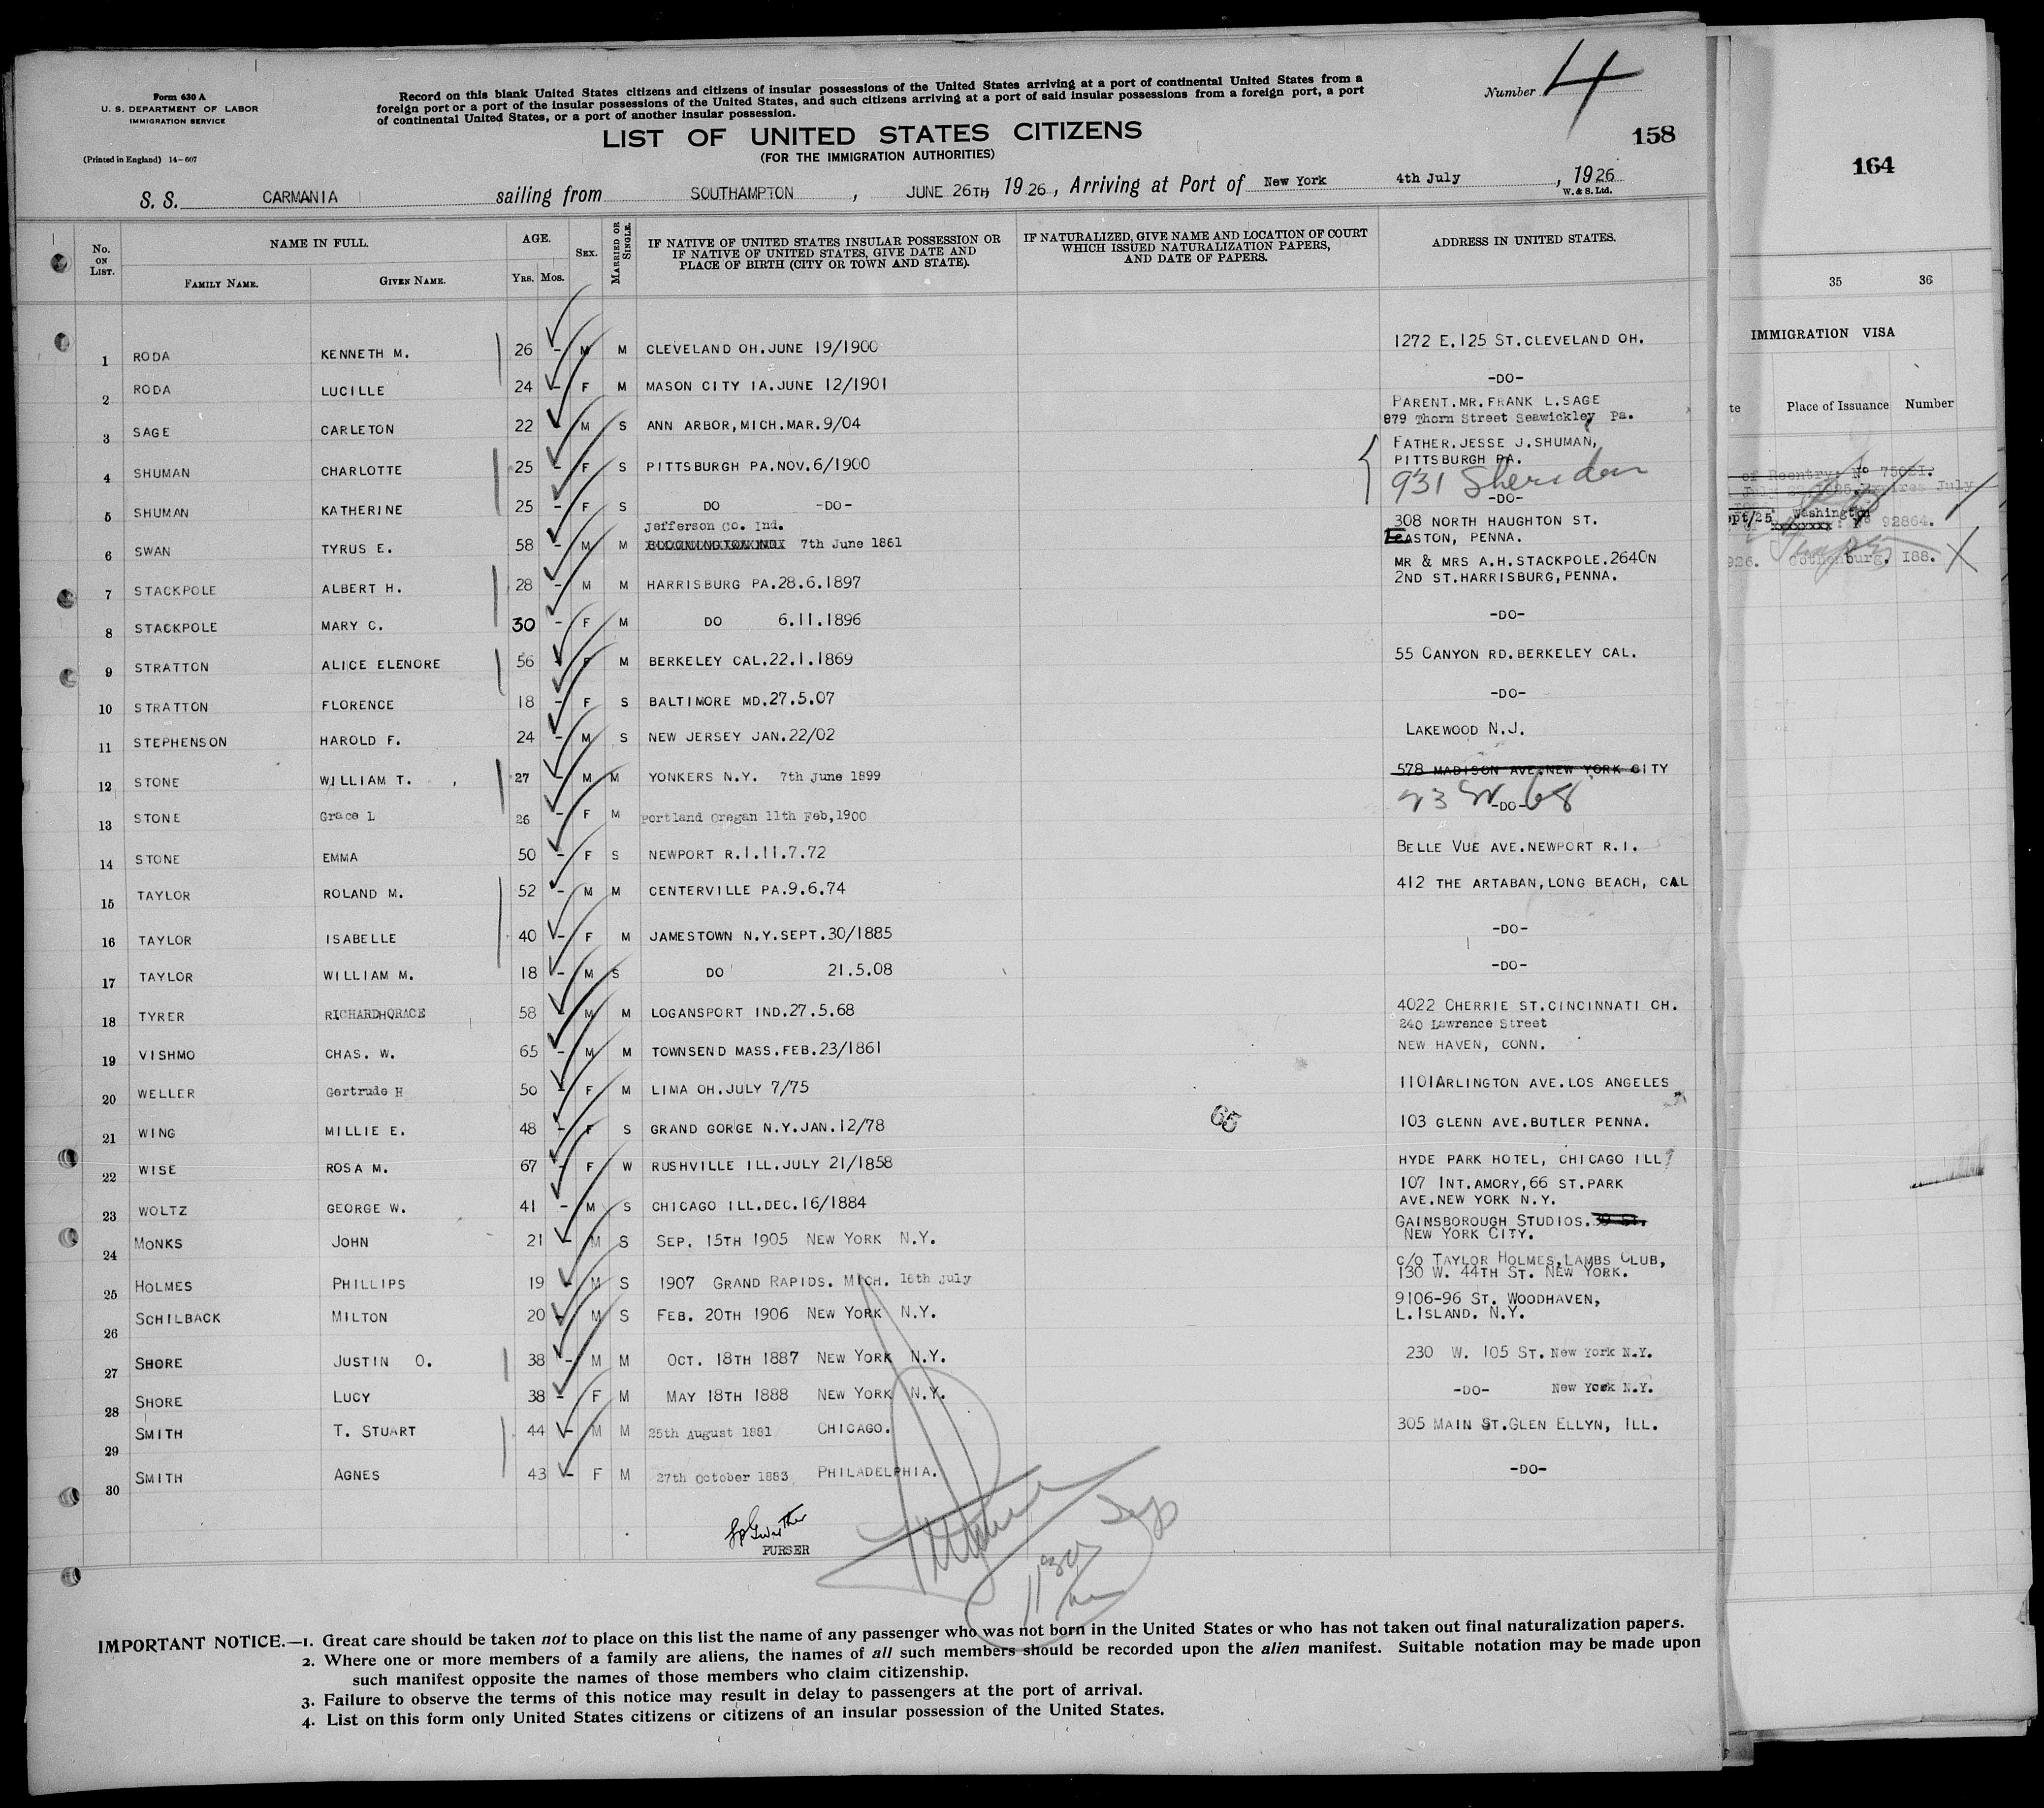 Form 630 A
U. S. DEPARTMENT OF LABOR
IMMIGRATION SERVICE
(Printed in England) 14-607
Record on this blank United States citizens and citizens of insular possessions of the United States arriving at a port of continental United States from a
foreign port or a port of the insular possessions of the United States, and such citizens arriving at a port of said insular possessions from a foreign port, a port
of continental United States, or a port of another insular possession.
Number 4
LIST OF UNITED STATES CITIZENS
(FOR THE IMMIGRATION AUTHORITIES)
158
S. S. CARMANIA sailing from SOUTHAMPTON , JUNE 26TH, 1926, Arriving at Port of New York 4th July , 1926
W. & S. Ltd.
No. ON LIST. NAME IN FULL. FAMILY NAME. GIVEN NAME. AGE. YRS. MOS. SEX. MARRIED OR SINGLE. IF NATIVE OF UNITED STATES INSULAR POSSESSION OR IF NATIVE OF UNITED STATES, GIVE DATE AND PLACE OF BIRTH (CITY OR TOWN AND STATE). IF NATURALIZED, GIVE NAME AND LOCATION OF COURT WHICH ISSUED NATURALIZATION PAPERS, AND DATE OF PAPERS. ADDRESS IN UNITED STATES.
1 RODA KENNETH M. 26 - M M CLEVELAND OH.JUNE 19/1900 1272 E.125 ST.CLEVELAND OH.
2 RODA LUCILLE 24 - F M MASON CITY IA.JUNE 12/1901 -DO-
3 SAGE CARLETON 22 M S ANN ARBOR,MICH.MAR.9/04 PARENT.MR.FRANK L.SAGE
879 Thorn Street Seawickley Pa.
4 SHUMAN CHARLOTTE 25 - F S PITTSBURGH PA.NOV.6/1900 FATHER.JESSE J.SHUMAN,
PITTSBURGH PA.
931 Sheridan
5 SHUMAN KATHERINE 25 - F S DO -DO- -DO-
6 SWAN TYRUS E. 58 - M M Jefferson Co. Ind. 7th June 1861 308 NORTH HAUGHTON ST.
EASTON, PENNA.
7 STACKPOLE ALBERT H. 28 - M M HARRISBURG PA.28.6.1897 MR & MRS A.H.STACKPOLE.2640N
2ND ST.HARRISBURG,PENNA.
8 STACKPOLE MARY C. 30 - F M DO 6.11.1896 -DO-
9 STRATTON ALICE ELENORE 56 F M BERKELEY CAL.22.1.1869 55 CANYON RD.BERKELEY CAL.
10 STRATTON FLORENCE 18 - F S BALTIMORE MD.27.5.07 -DO-
11 STEPHENSON HAROLD F. 24 - M S NEW JERSEY JAN.22/02 LAKEWOOD N.J.
12 STONE WILLIAM T. , 27 - M M YONKERS N.Y. 7th June 1899 578 MADISON AVE.NEW YORK CITY
13 STONE Grace L 26 - F M Portland Oregan 11th Feb,1900 -DO- 68
14 STONE EMMA 50 - F S NEWPORT R.I.11.7.72 BELLE VUE AVE.NEWPORT R.I.
15 TAYLOR ROLAND M. 52 - M M CENTERVILLE PA.9.6.74 412 THE ARTABAN,LONG BEACH, CAL
16 TAYLOR ISABELLE 40 - F M JAMESTOWN N.Y.SEPT.30/1885 -DO-
17 TAYLOR WILLIAM M. 18 - M S DO 21.5.08 -DO-
18 TYRER RICHARDHORACE 58 - M M LOGANSPORT IND.27.5.68 4022 CHERRIE ST.CINCINNATI OH.
19 VISHMO CHAS. W. 65 - M M TOWNSEND MASS.FEB.23/1861 240 Lawrence Street
NEW HAVEN, CONN.
20 WELLER Gertrude H 50 - F M LIMA OH.JULY 7/75 1101ARLINGTON AVE.LOS ANGELES
65
21 WING MILLIE E. 48 - F S GRAND GORGE N.Y.JAN.12/78 103 GLENN AVE.BUTLER PENNA.
22 WISE ROSA M. 67 - F W RUSHVILLE ILL.JULY 21/1858 HYDE PARK HOTEL, CHICAGO ILL
23 WOLTZ GEORGE W. 41 - M S CHICAGO ILL.DEC.16/1884 107 INT.AMORY,66 ST.PARK
AVE.NEW YORK N.Y.
24 MONKS JOHN 21 - M S SEP. 15TH 1905 NEW YORK N.Y. GAINSBOROUGH STUDIOS.
NEW YORK CITY.
25 HOLMES PHILLIPS 19 - M S 1907 GRAND RAPIDS. MICH. 16th July C/O TAYLOR HOLMES,LAMBS CLUB,
130 W. 44TH ST. NEW YORK.
26 SCHILBACK MILTON 20 - M S FEB. 20TH 1906 NEW YORK N.Y. 9106-96 ST. WOODHAVEN,
L.ISLAND. N.Y.
27 SHORE JUSTIN O. 38 - M M OCT. 18TH 1887 NEW YORK N.Y. 230 W. 105 ST. New York N.Y.
28 SHORE LUCY 38 - F M MAY 18TH 1888 NEW YORK N.Y. -DO- New York N.Y.
29 SMITH T. STUART 44 - M M 25th August 1881 CHICAGO. 305 MAIN ST.GLEN ELLYN, ILL.
30 SMITH AGNES 43 - F M 27th October 1883 PHILADELPHIA. -DO-
PURSER
IMPORTANT NOTICE.—1. Great care should be taken not to place on this list the name of any passenger who was not born in the United States or who has not taken out final naturalization papers.
2. Where one or more members of a family are aliens, the names of all such members should be recorded upon the alien manifest. Suitable notation may be made upon
such manifest opposite the names of those members who claim citizenship.
3. Failure to observe the terms of this notice may result in delay to passengers at the port of arrival.
4. List on this form only United States citizens or citizens of an insular possession of the United States.
164
35 36
IMMIGRATION VISA
te Place of Issuance Number
of Reentry: No
July
Washington
92864.
926. Gothenburg. 188.